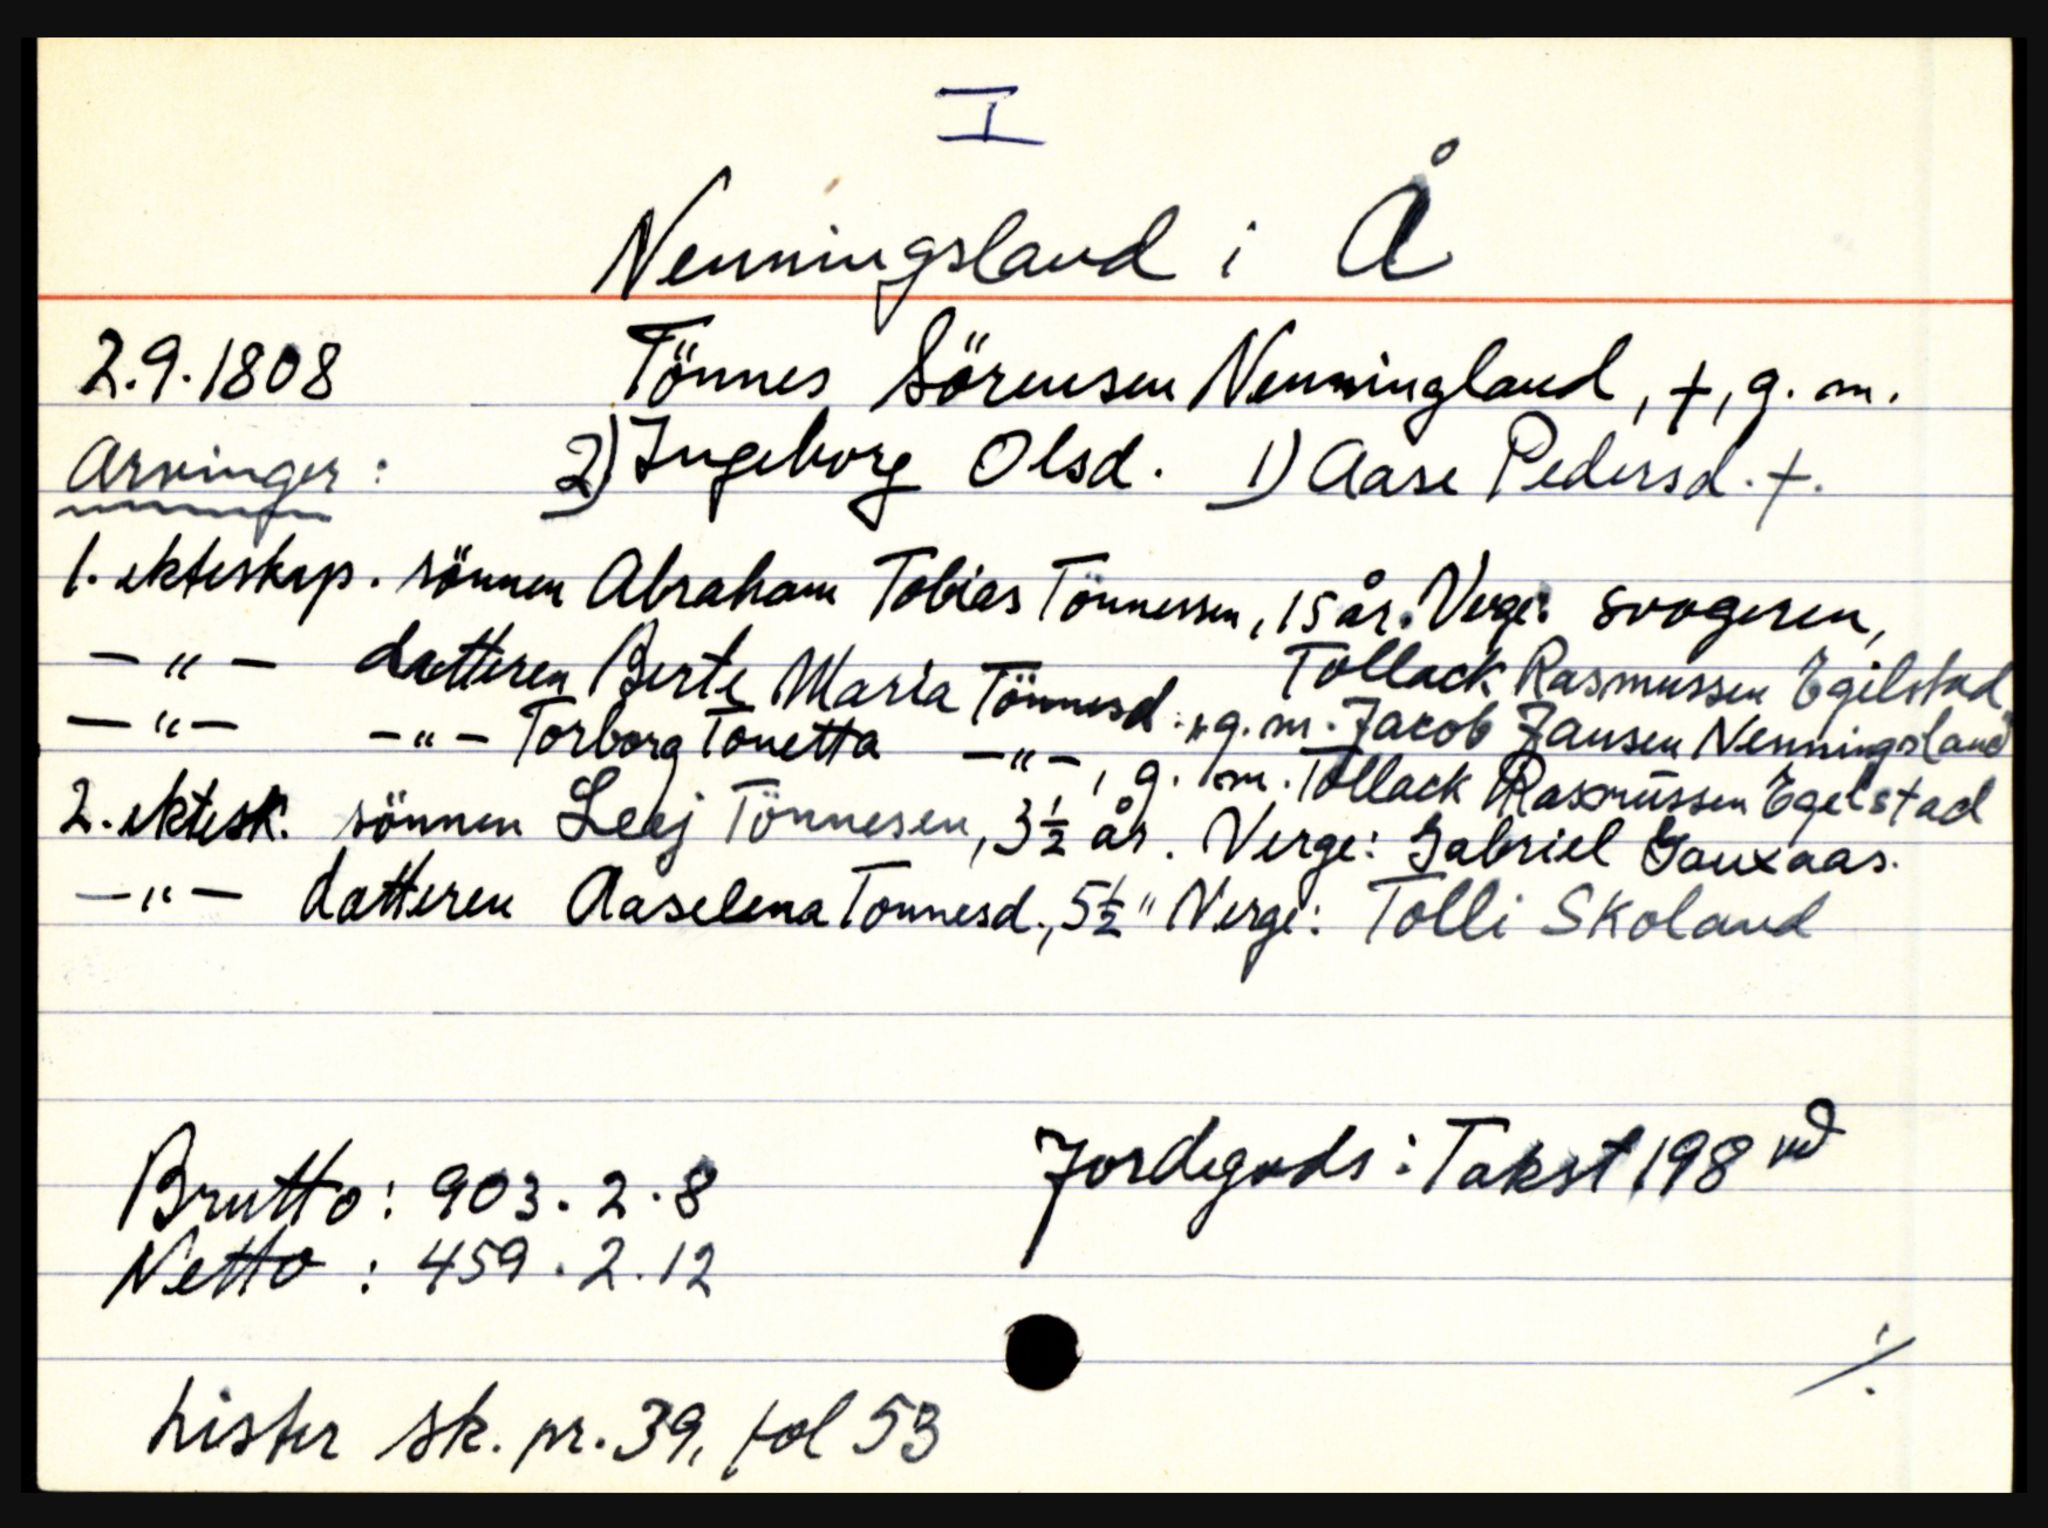 I
Nenningsland i Å
2.9.1808 Tönnes Sörensen Nenningland, †, g. m.
Arvinger: 2) Ingeborg Olsd. 1) Aase Pedersd. †.
1. ekteskap. sönnen Abraham Tobias Tönnessen, 15 år. Verge: svogeren,
Tollack Rasmussen Egilstad
-"- datteren Berte Maria Tönnesd., g. m. Jacob Jansen Nenningsland
-"- -"- Torborg Tonetta -"-, g. m. Tollack Rasmussen Egelstad
2. ektesk. sönnen Leej Tönnesen, 3½ år. Verge: Gabriel Gauxaas.
-"- datteren Aaselena Tonnesd., 5½ " Verge: Tolli Skoland
Brutto: 903.2.8 Jordegods: Takst 198 rd
Netto: 459.2.12
./.
Lister sk. pr. 39, fol 53